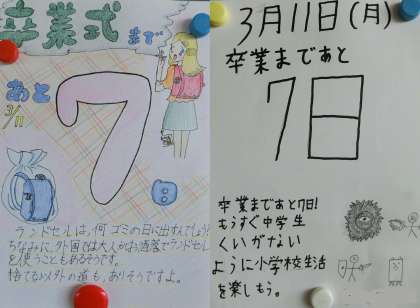 卒業式まで
あと
3/11
7
日
ランドセルは、何ゴミの日に出すんでしょう
ちなみに、外国では大人がお洒落でランドセル
を使うこともあるそうです。
捨てる以外の道も、ありそうですよ。
3月11日(月)
卒業まであと
7日
卒業まであと7日!
もうすぐ中学生
くいがない
ように小学校生活
を楽しもう。